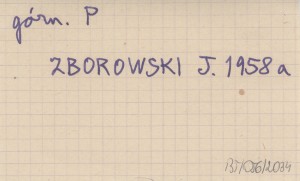 górn. P
ZBOROWSKI J. 1958a
BJ/086/2034